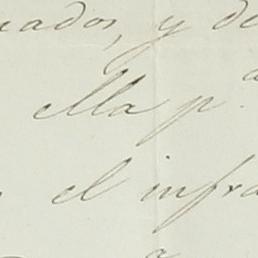 cados, y de
ella p.a
el infra